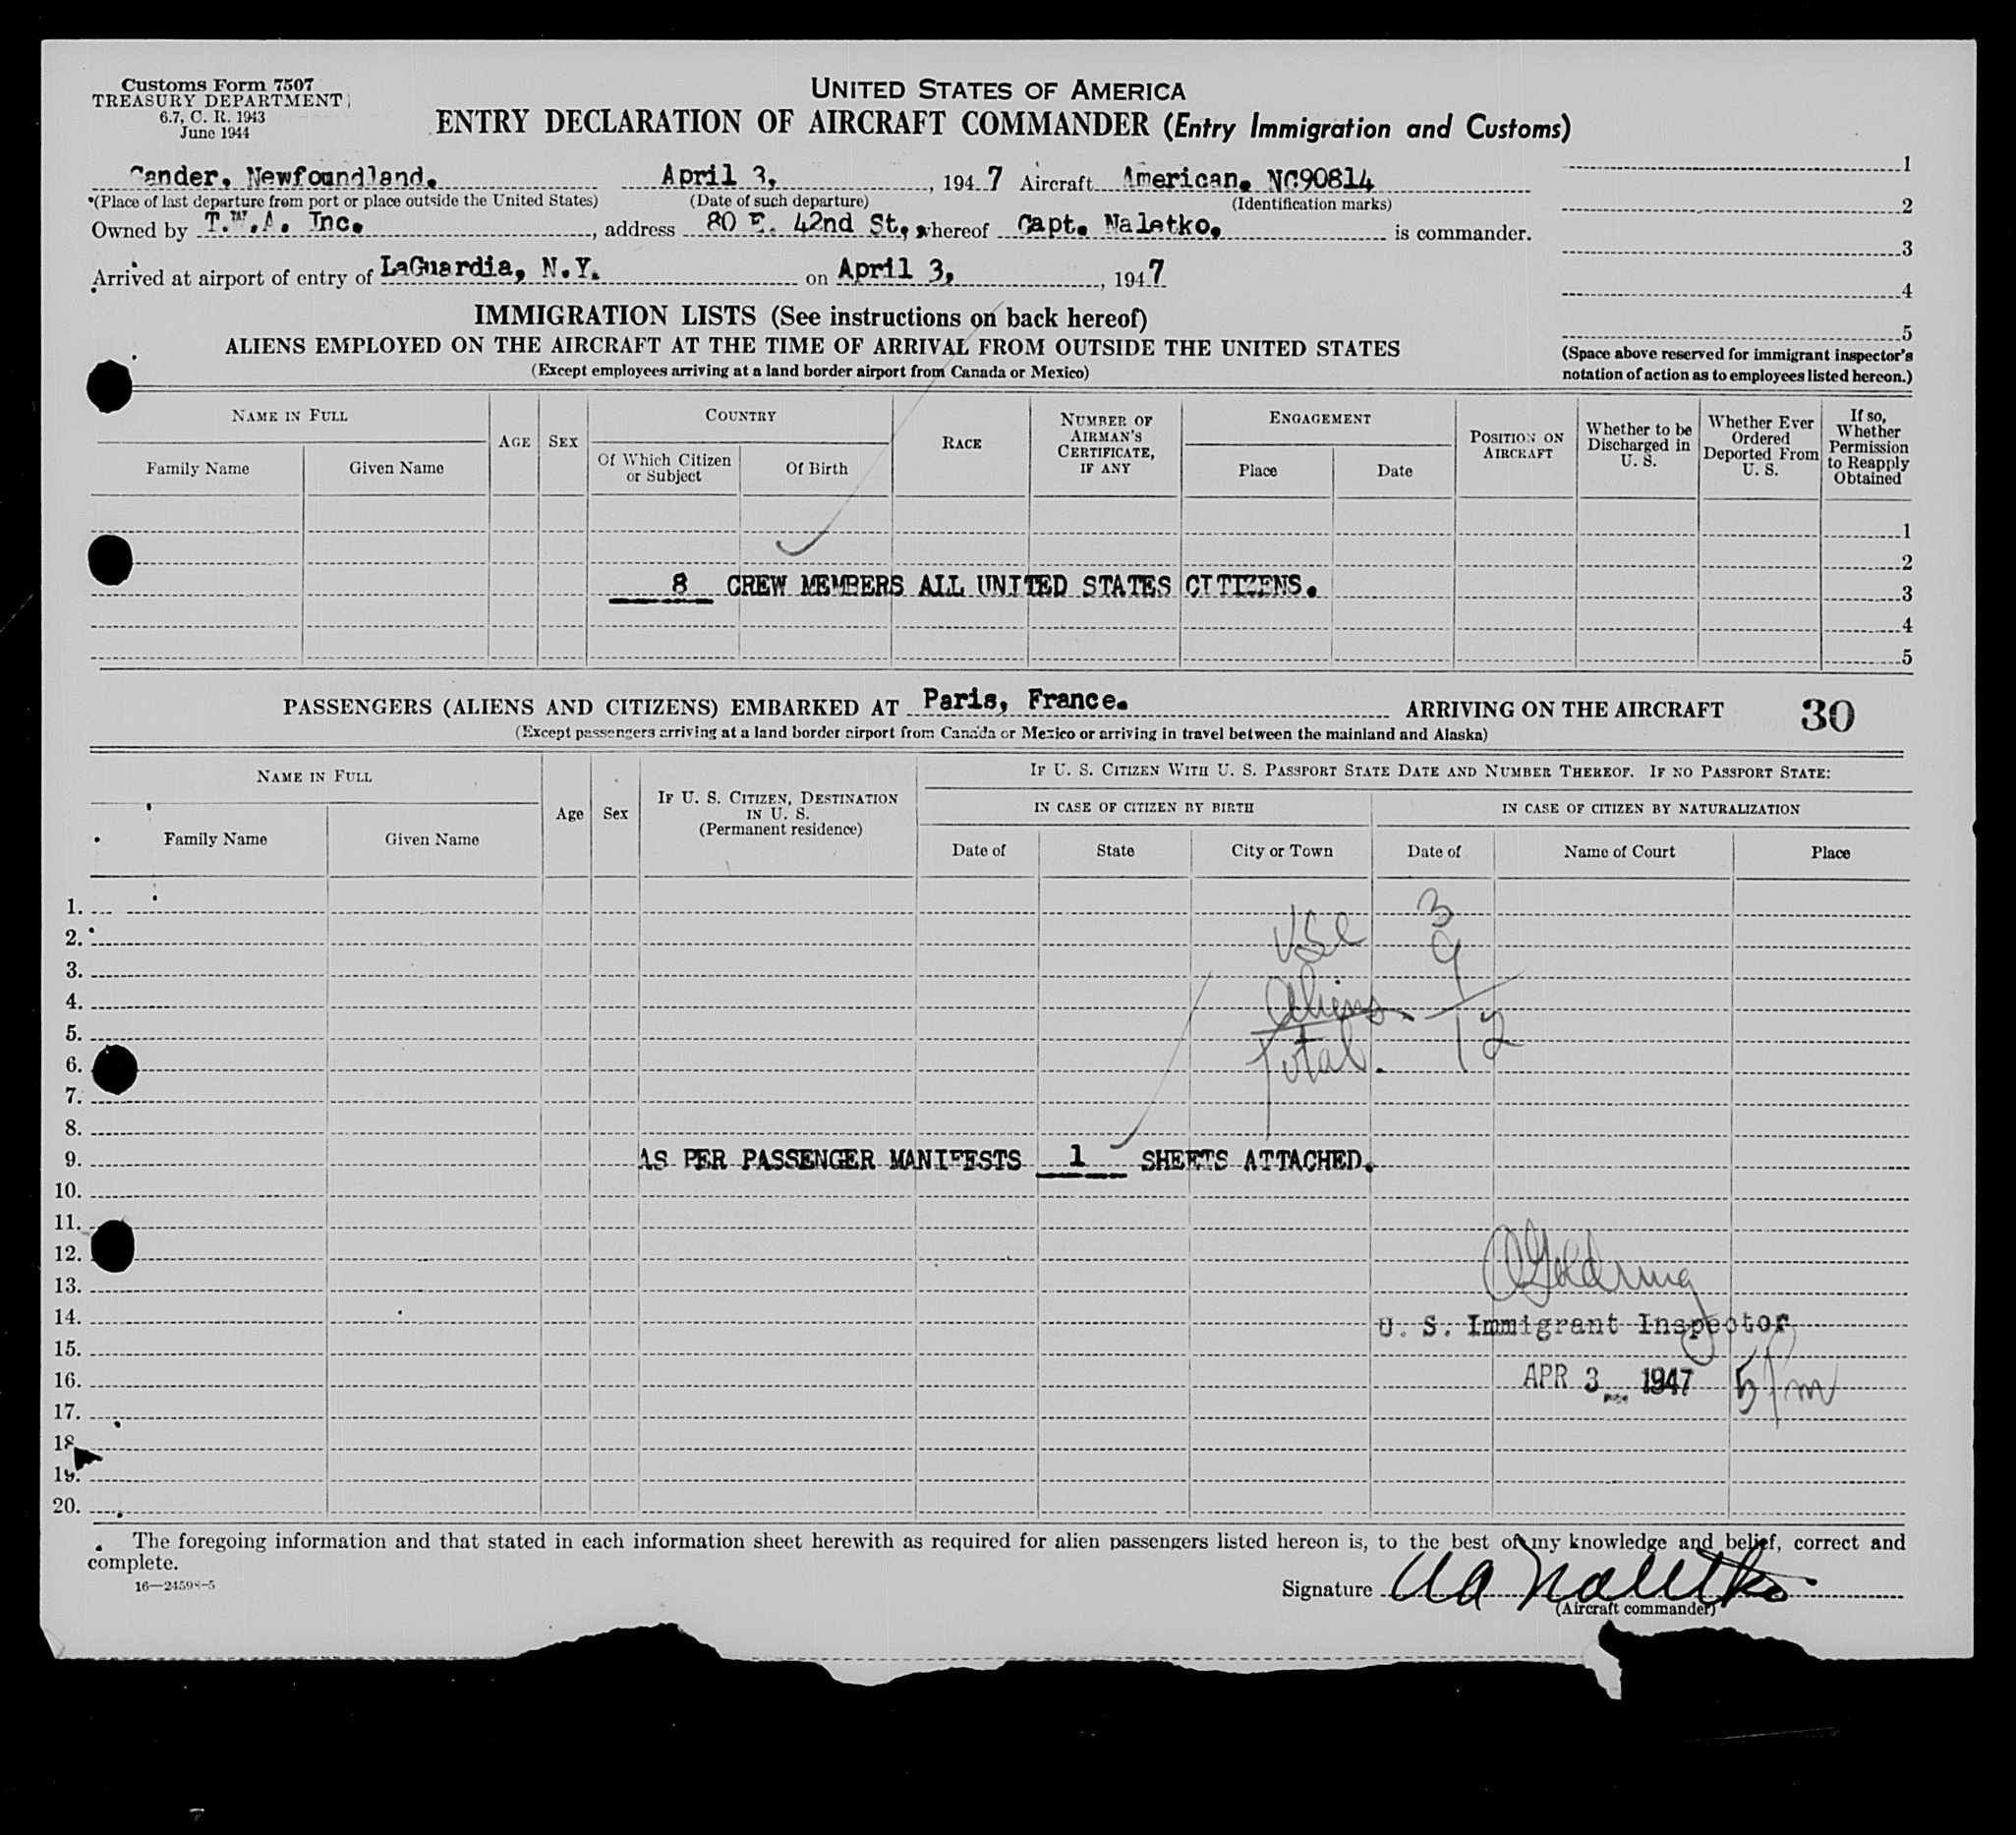 Customs Form 7507
TREASURY DEPARTMENT
6.7, C. R. 1943
June 1944
UNITED STATES OF AMERICA
ENTRY DECLARATION OF AIRCRAFT COMMANDER (Entry Immigration and Customs)
Gander, Newfoundland. April 3, , 1947 Aircraft American. NC90814
(Place of last departure from port or place outside the United States) (Date of such departure) (Identification marks)
Owned by T.W.A. Inc. , address 80 E. 42nd St, whereof Capt. Naletko, is commander.
Arrived at airport of entry of LaGuardia, N.Y. on April 3, , 1947
1
2
3
4
5
(Space above reserved for immigrant inspector's
notation of action as to employees listed hereon.)
IMMIGRATION LISTS (See instructions on back hereof)
ALIENS EMPLOYED ON THE AIRCRAFT AT THE TIME OF ARRIVAL FROM OUTSIDE THE UNITED STATES
(Except employees arriving at a land border airport from Canada or Mexico)
NAME IN FULL
Family Name Given Name
AGE SEX
COUNTRY
Of Which Citizen
or Subject
Of Birth
RACE
NUMBER OF
AIRMAN'S
CERTIFICATE,
IF ANY
ENGAGEMENT
Place Date
POSITION ON
AIRCRAFT
Whether to be
Discharged in
U. S.
Whether Ever
Ordered
Deported From
U. S.
If so,
Whether
Permission
to Reapply
Obtained
1
2
8 CREW MEMBERS ALL UNITED STATES CITIZENS. 3
4
5
PASSENGERS (ALIENS AND CITIZENS) EMBARKED AT Paris, France. ARRIVING ON THE AIRCRAFT 30
(Except passengers arriving at a land border airport from Canada or Mexico or arriving in travel between the mainland and Alaska)
NAME IN FULL
Family Name Given Name
Age Sex
IF U. S. CITIZEN, DESTINATION
IN U. S.
(Permanent residence)
IF U. S. CITIZEN WITH U. S. PASSPORT STATE DATE AND NUMBER THEREOF. IF NO PASSPORT STATE:
IN CASE OF CITIZEN BY BIRTH IN CASE OF CITIZEN BY NATURALIZATION
Date of State City or Town Date of Name of Court Place
1.
USC 3
2.
9
3.
4.
Aliens
5.
Total. 12
6.
7.
8.
9. AS PER PASSENGER MANIFESTS 1 SHEETS ATTACHED.
10.
11.
12.
13.
14. U. S. Immigrant Inspector
15.
16. APR 3 1947 5 Pm
17.
18
19.
20.
The foregoing information and that stated in each information sheet herewith as required for alien passengers listed hereon is, to the best of my knowledge and belief, correct and
complete.
16—24598-5
Signature
(Aircraft commander)